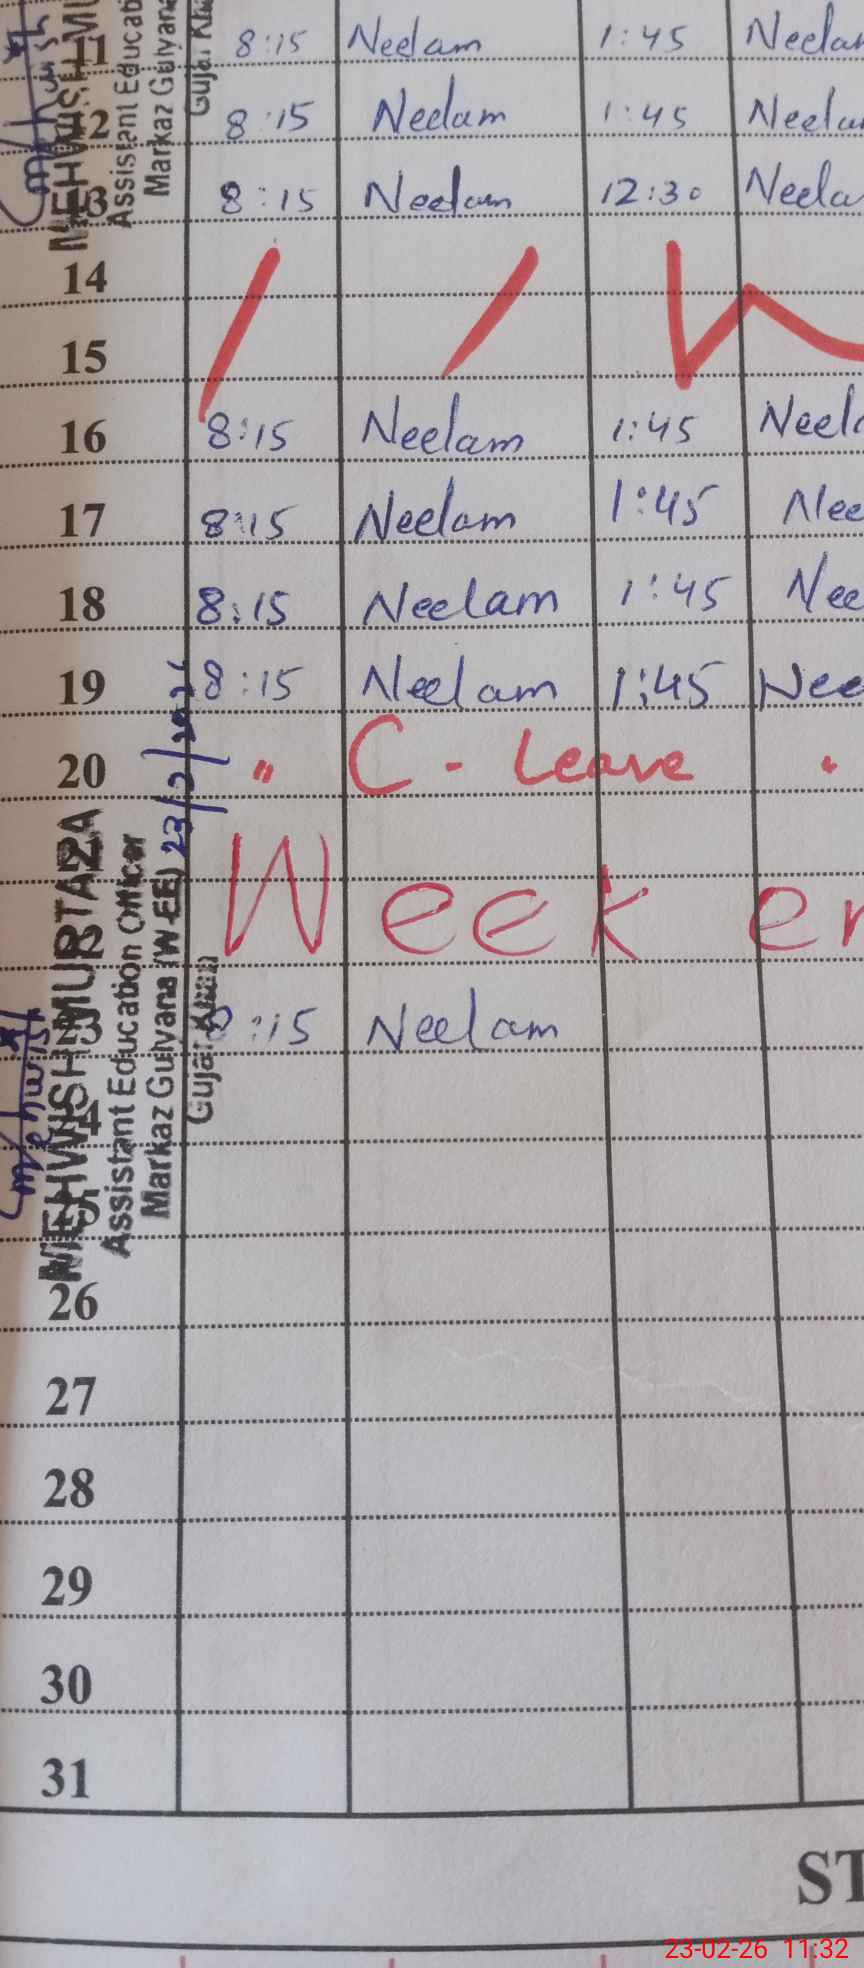 11 8:15 Neelam 1:45 Neelam
12 8:15 Neelam 1:45 Neelam
13 8:15 Neelam 12:30 Neela
14
15
16 8:15 Neelam 1:45 Neel
17 8:15 Neelam 1:45 Nee
18 8:15 Neelam 1:45 Nee
19 8:15 Neelam 1:45 Nee
20 " C - Leave
Week en
8:15 Neelam
26
27
28
29
30
31
MEHWISH MU
Assistant Educat
Markaz Gulyana
Gujar Kha
MEHWISH MURTAZA
Assistant Education Officer
Markaz Gulyana (W-EE) 23/2/2026
Gujar Khan
ST
23-02-26 11:32